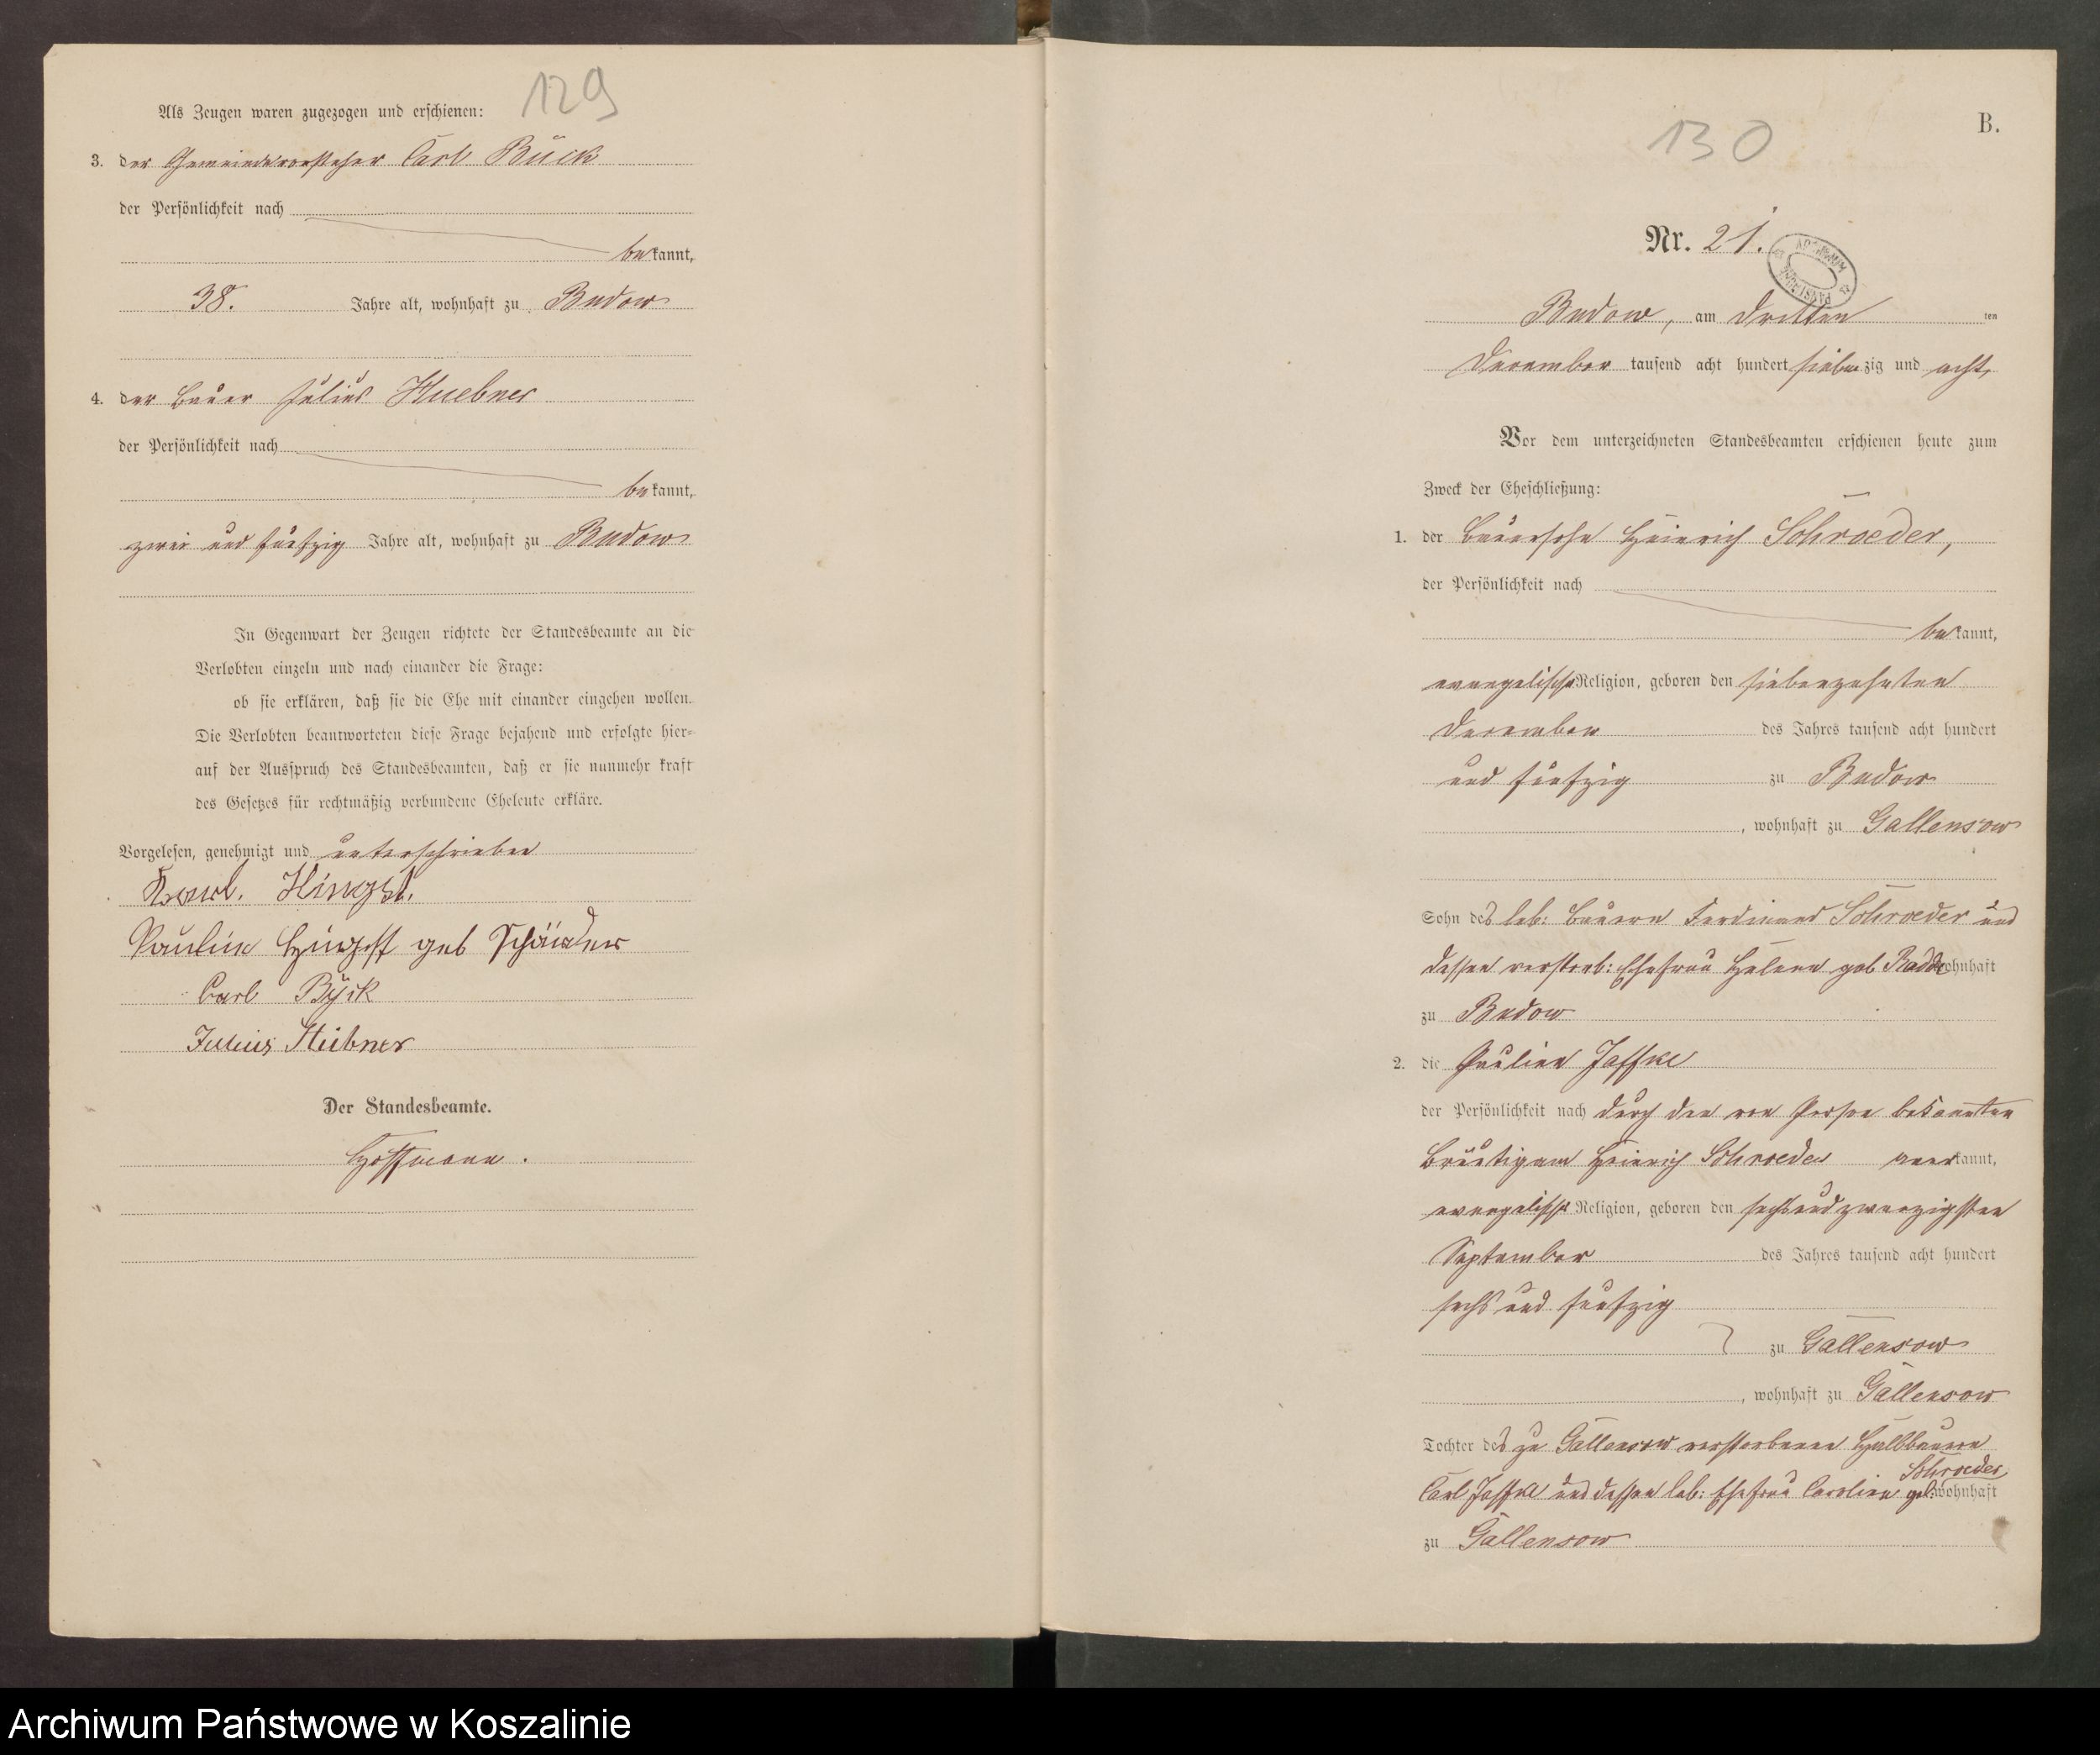 129
Als Zeugen waren zugezogen und erschienen:
3. der Gemeindevorsteher Carl Bück
der Persönlichkeit nach
bekannt,
38. Jahre alt, wohnhaft zu Budow
4. der Bauer Julius Huebner
der Persönlichkeit nach
bekannt,
zwei und fünfzig Jahre alt, wohnhaft zu Budow
In Gegenwart der Zeugen richtete der Standesbeamte an die
Verlobten einzeln und nach einander die Frage:
ob sie erklären, daß sie die Ehe mit einander eingehen wollen.
Die Verlobten beantworteten diese Frage bejahend und erfolgte hier-
auf der Ausspruch des Standesbeamten, daß er sie nunmehr kraft
des Gesetzes für rechtmäßig verbundene Eheleute erkläre.
Vorgelesen, genehmigt und unterschrieben
Karl. Hingst.
Pauline Hingst geb
Carl Bück
Julius Hübner
Der Standesbeamte.
Hoffmann.
130
B.
Nr. 21.
Budow, am dritten ten
December tausend acht hundert siebenzig und acht,
Vor dem unterzeichneten Standesbeamten erschienen heute zum
Zweck der Eheschließung:
1. der Bauersohn Heinrich Schroeder,
der Persönlichkeit nach
bekannt,
evangelischer Religion, geboren den siebenzehnten
December des Jahres tausend acht hundert
und fünfzig zu Budow
, wohnhaft zu Gallensow
Sohn des leb: Bauern Ferdinand Schroeder und
dessen verstorb: Ehefrau Helene geb Radde wohnhaft
zu Budow
2. die Pauline Jaffke
der Persönlichkeit nach durch den von Person bekannten
Bräutigam Heinrich Schroeder anerkannt,
evangelischer Religion, geboren den sechsundzwanzigsten
September des Jahres tausend acht hundert
sechs und fünfzig
zu Gallensow
, wohnhaft zu Gallensow
Tochter des zu Gallensow verstorbenen Halbbauern
Carl Jaffke und dessen leb: Ehefrau Caroline geb. Schroeder wohnhaft
zu Gallensow
Archiwum Państwowe w Koszalinie